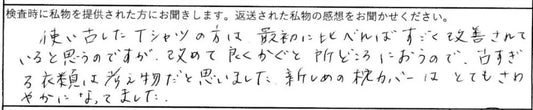 検査時に私物を提供された方にお聞きします。返送された私物の感想をお聞かせください。
使い古したTシャツの方は最初に比べればすごく改善されて
いると思うのですが、改めて良くかぐと所どころにおうので、古すぎ
る衣類は考え物だと思いました。新しめの枕カバーはとてもさわ
やかになってました。